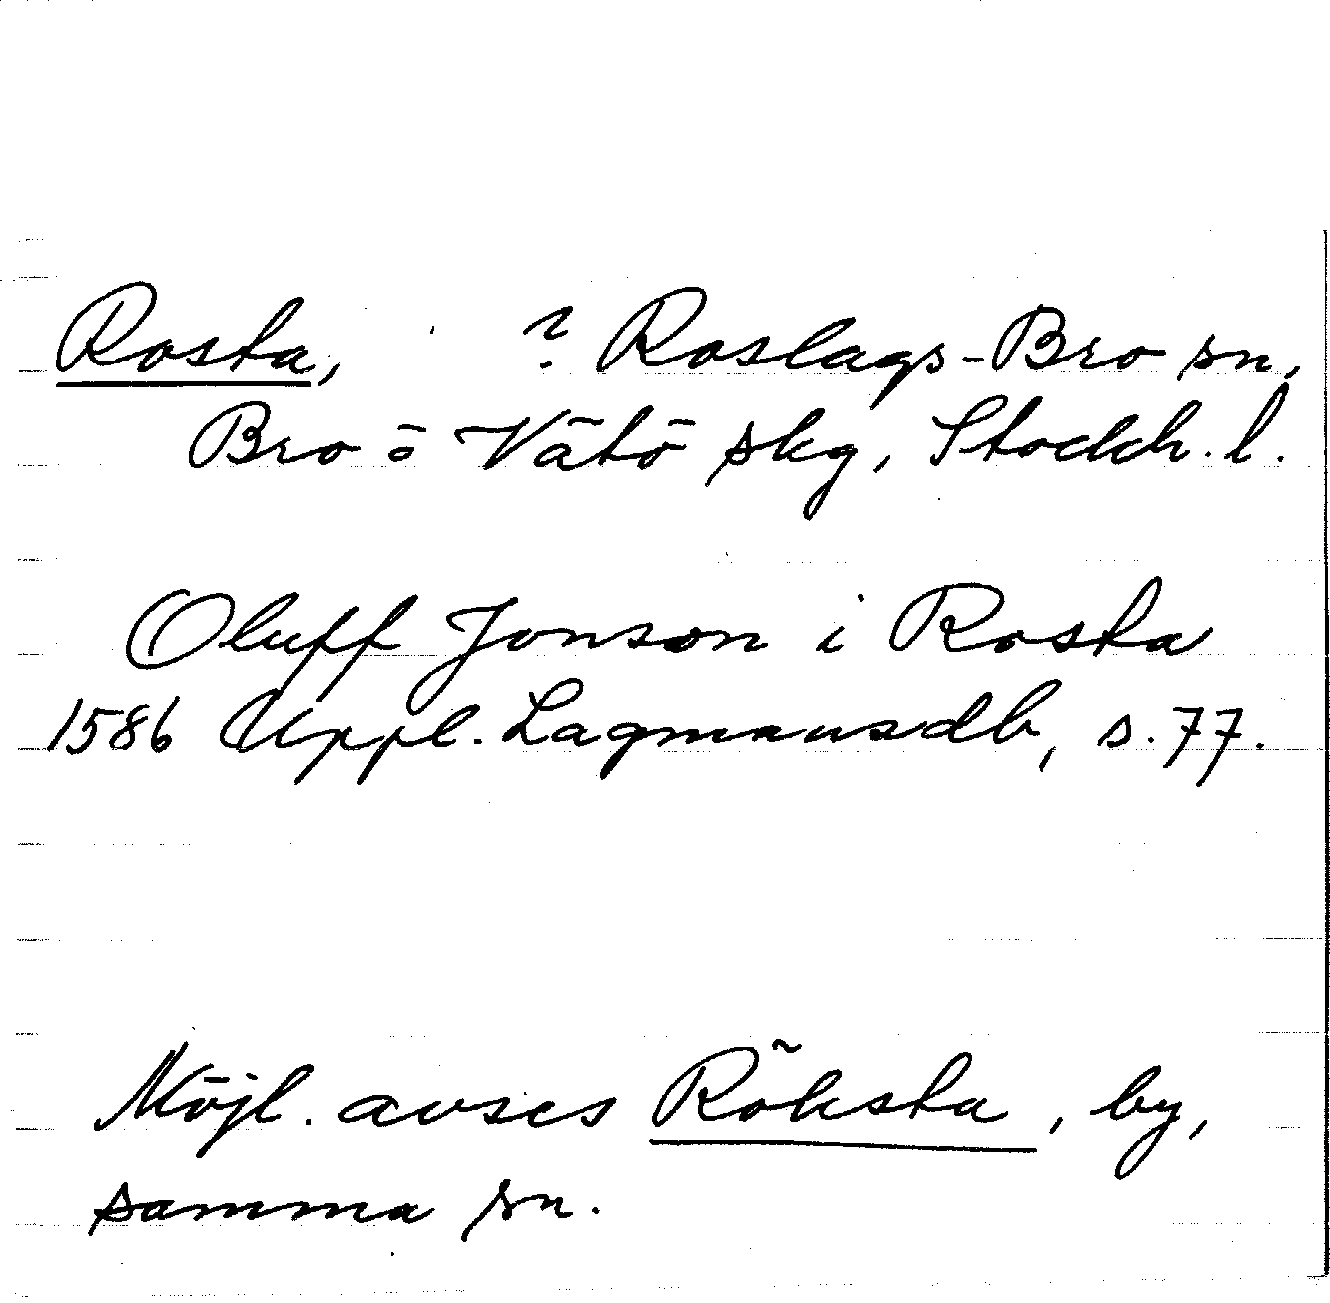 Rosta, ? Roslags-Bro sn,
Bro o Vätö skg, Stockh. l.
Oluff Jonson i Rosta
1586 Uppl. Lagmansdb, s. 77.
Möjl. avses Röksta, by,
samma sn.